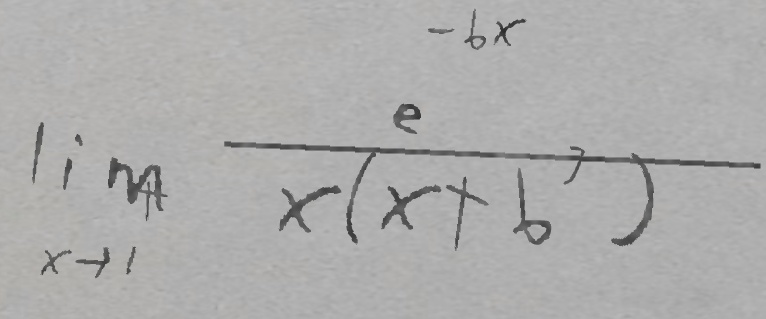 lim_{x→1} \frac{e^{-bx}}{x(x+b^{7})}